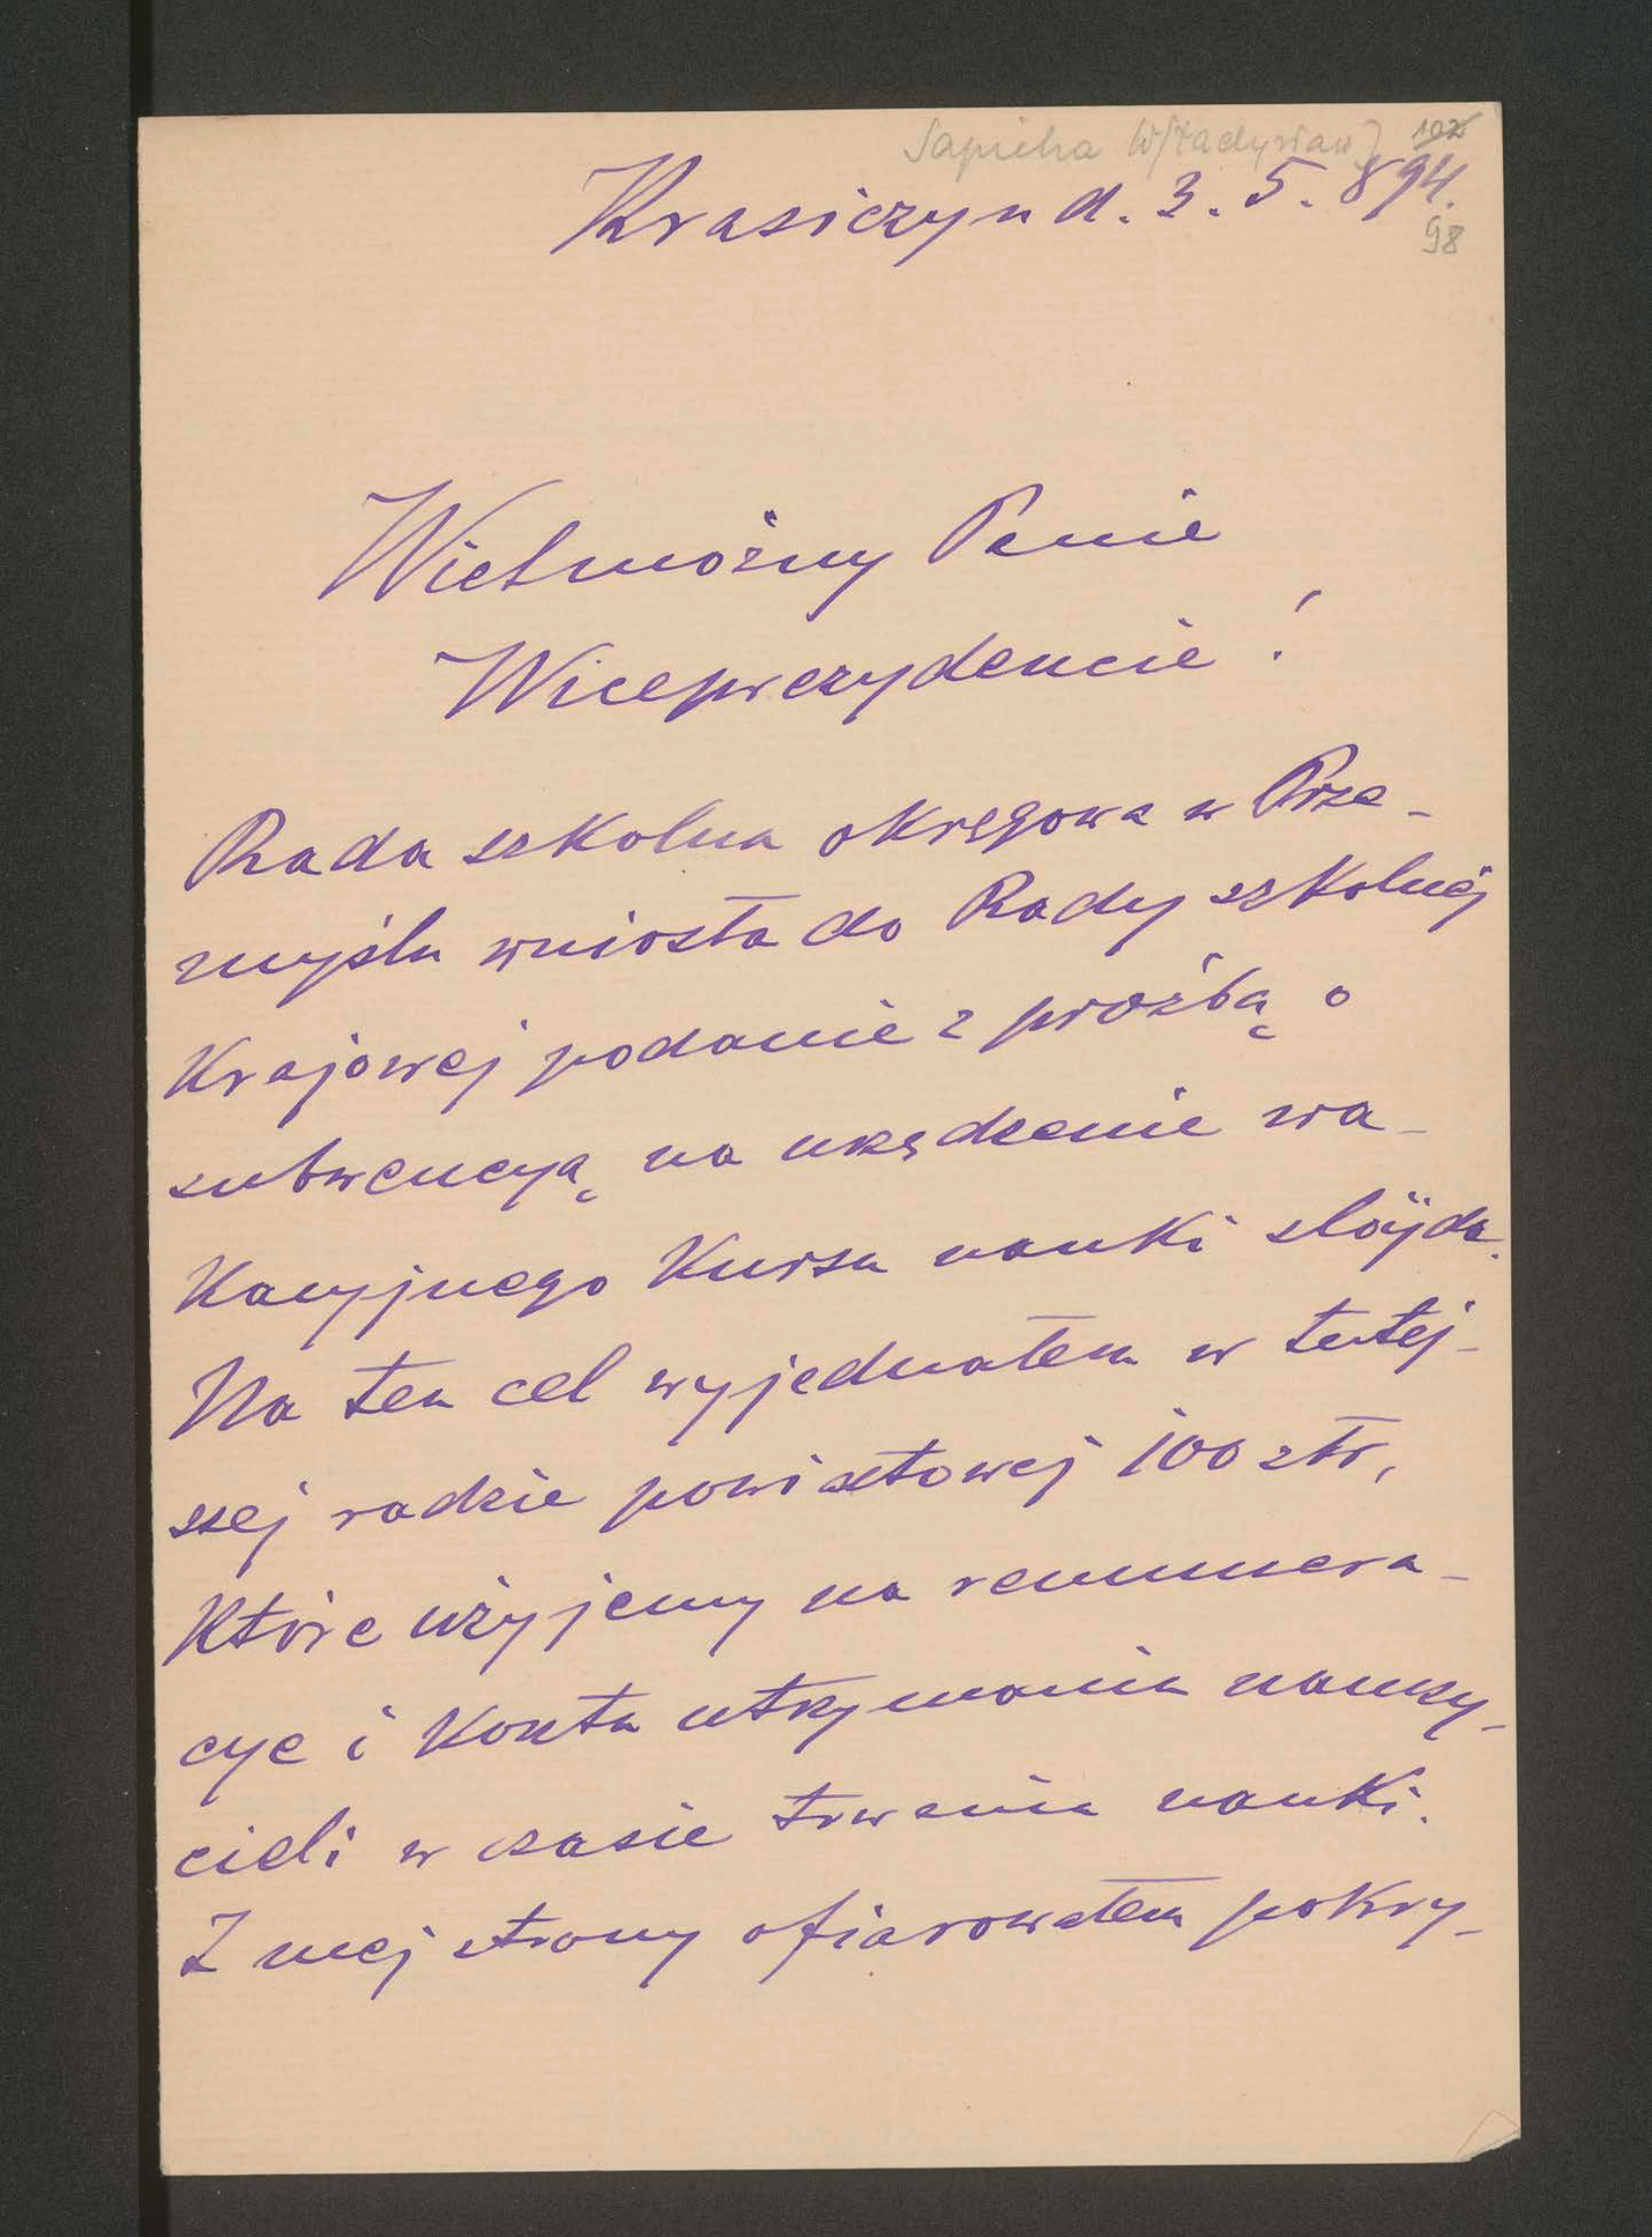 Sapieha W[ładysław]
Krasiczyn d. 3. 5. 894.
98
Wielmożny Panie
Wiceprezydencie!
Rada szkolna okręgowa w Prze-
myślu wniosła do Rady szkolnej
Krajowej podanie z prośbą o
subwencyą na urządzenie wa-
kacyjnego Kursu nauki slöjdu.
Na ten cel wyjednałem w tutej-
szej radzie powiatowej 100 złr,
Które użyjemy na remunera-
cye i Koszta utrzymania nauczy-
cieli w czasie trwania nauki.
Z mej strony ofiarowałem pokry-